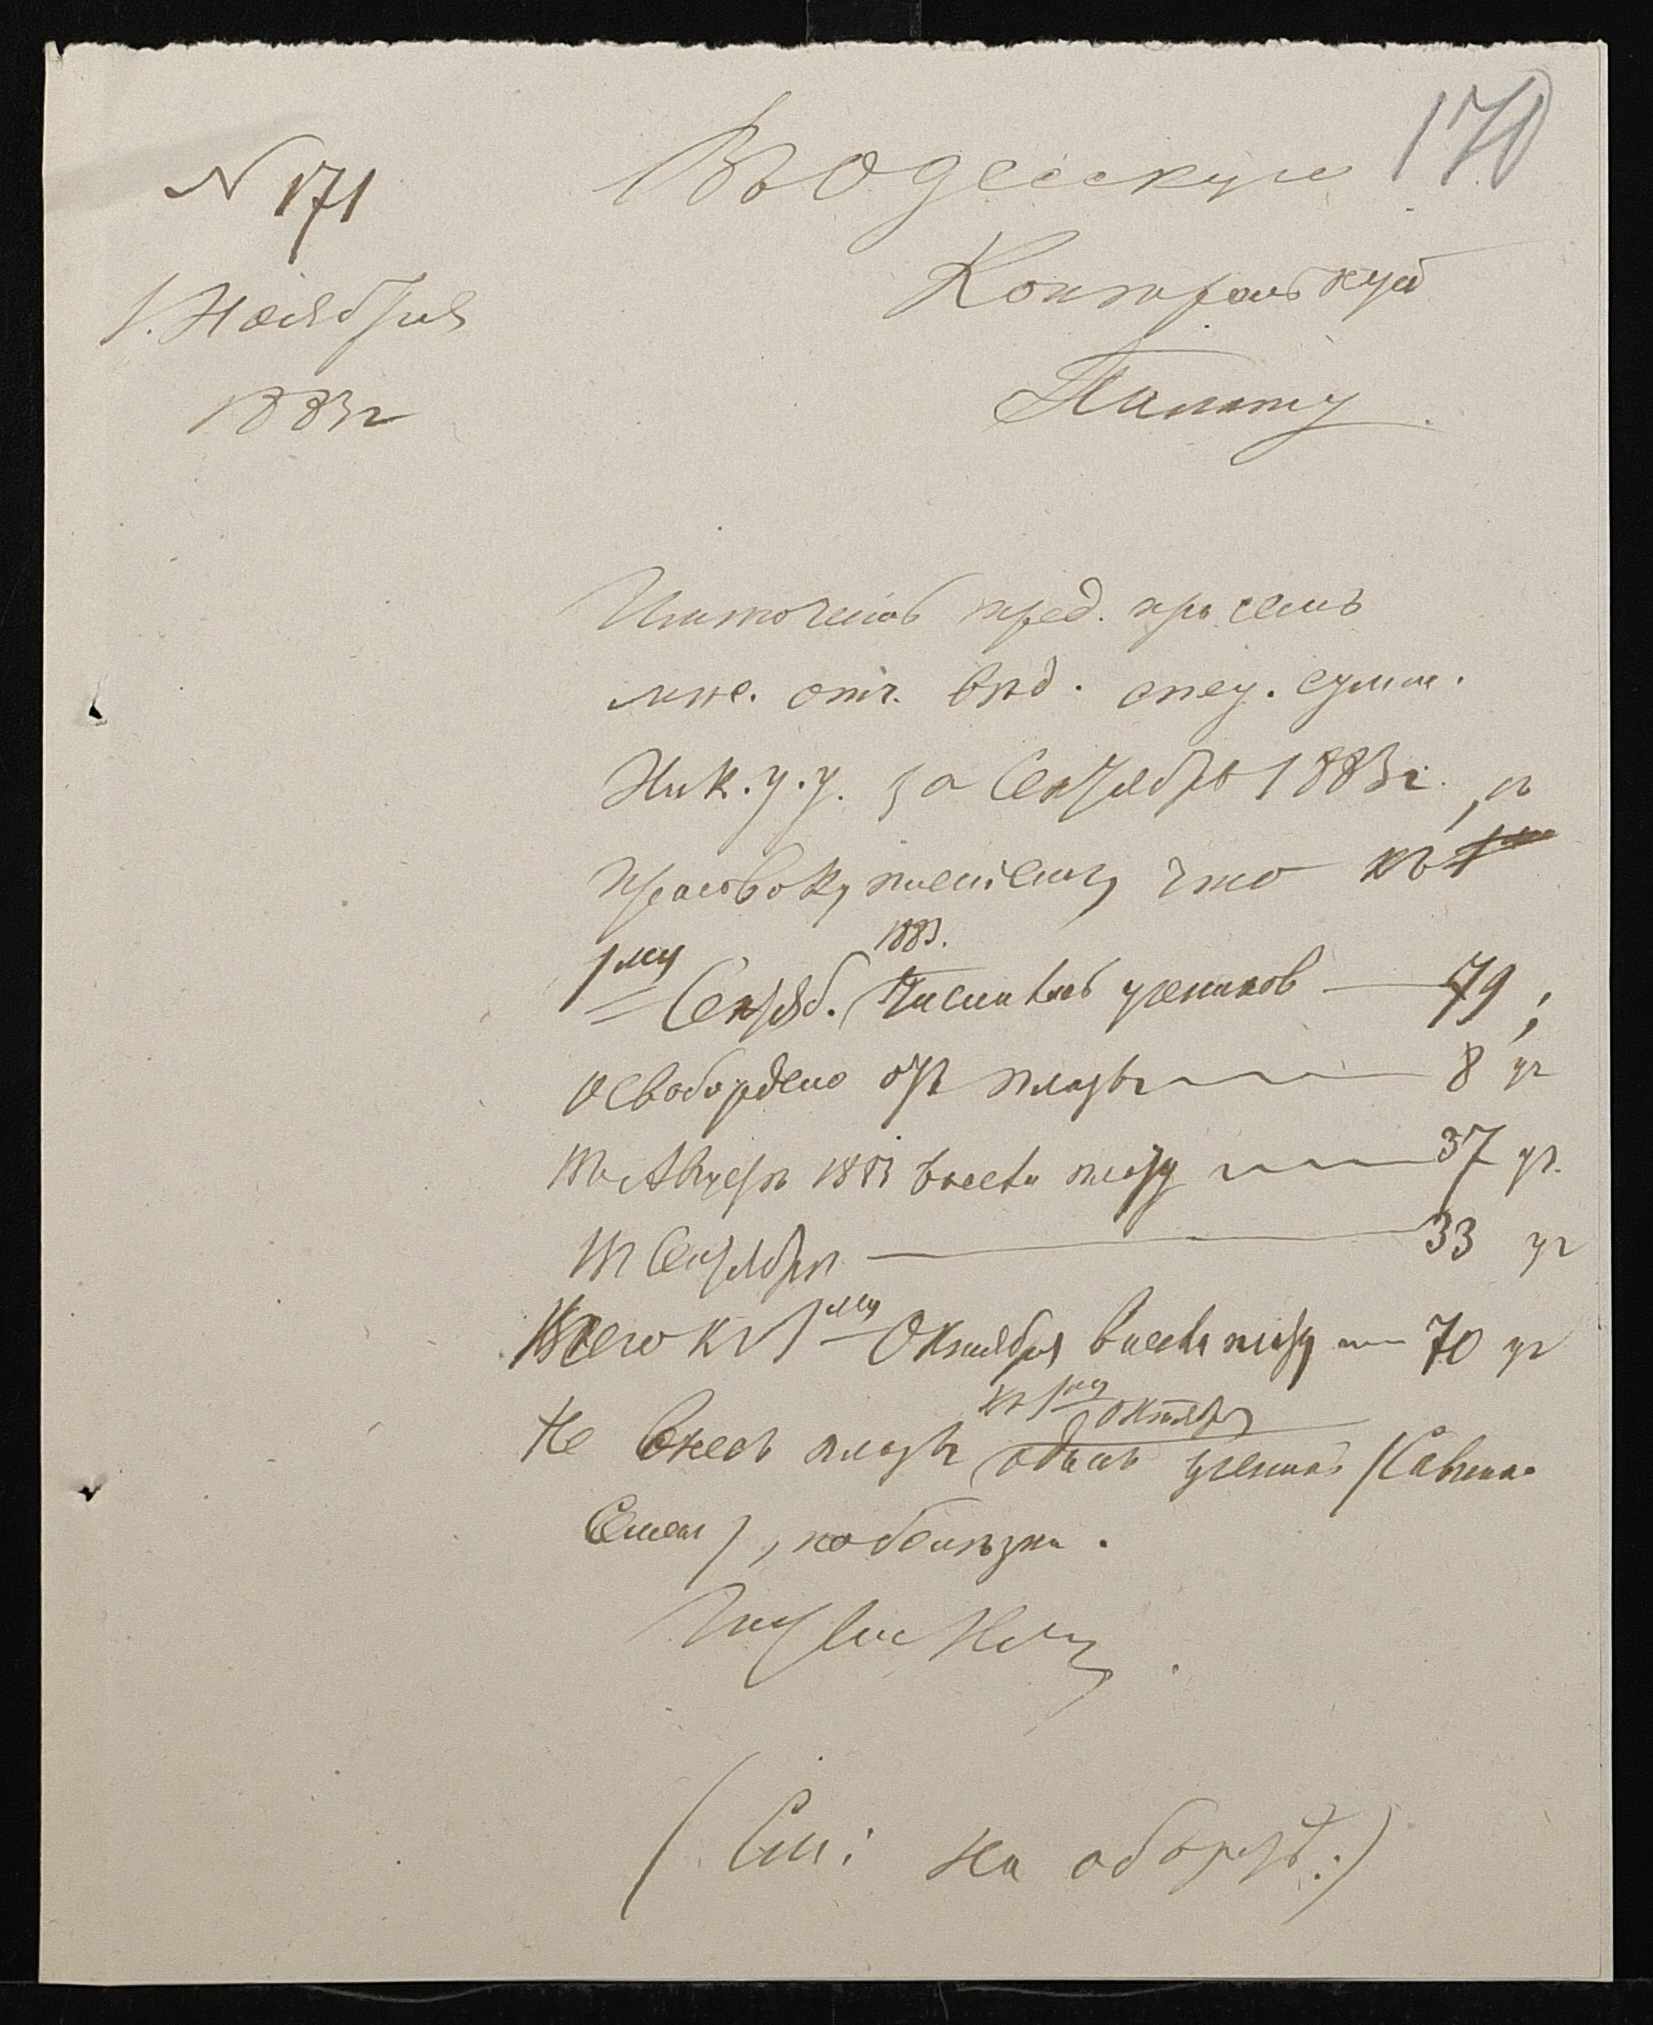 170
N 171
Въ Одесскую
1. Ноября
Контрольную
1883 г
Палату
пред. при семъ
отч. вѣд. спец. сумм.
Ник. у. у. за Сентябрь 1883 г., съ
присовокупленіемъ, что къ
1му Сентяб. 1883. числилось учениковъ — 79;
освобождено отъ платы — 8 уч
Въ Августѣ 1883 внесли плату — 37 уч.
Въ Сентябрѣ — 33 уч
Всего къ 1му Октября внесли плату — 70 уч
къ 1му Октября
Не внесъ платы одинъ ученикъ (Савенко
Семенъ), по болѣзни.
(См: на оборотѣ:)